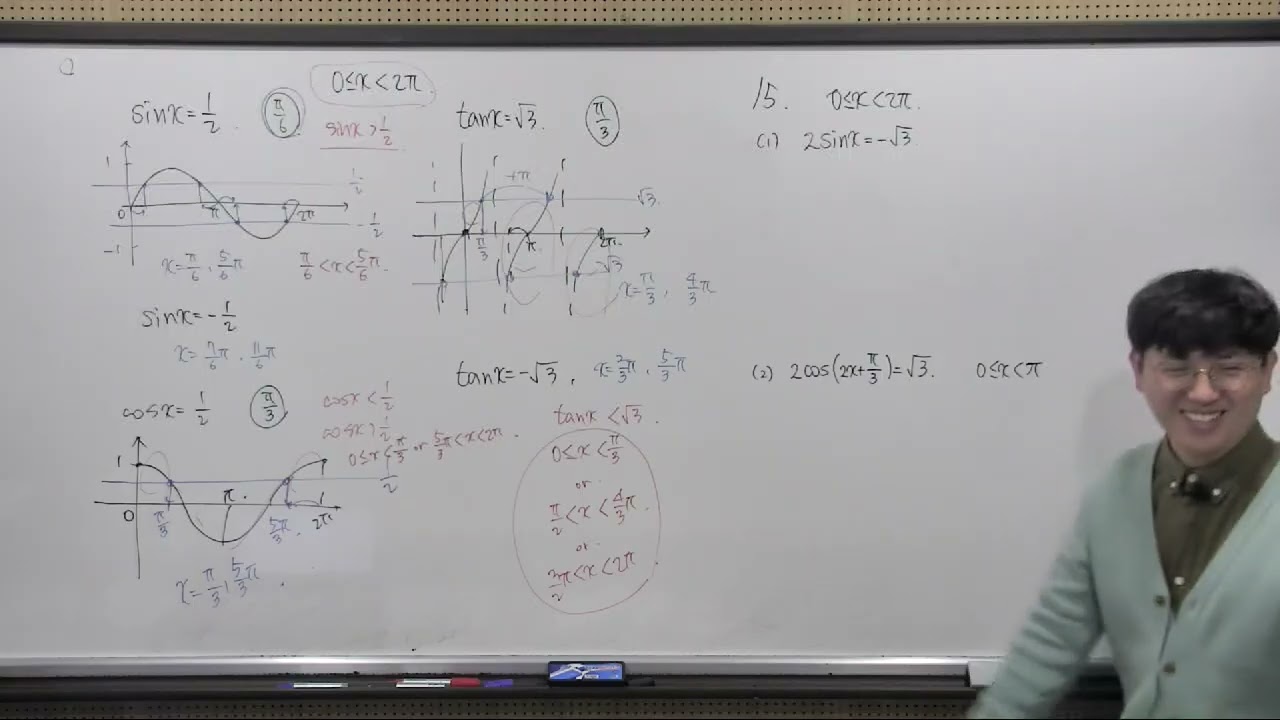 0≤x<2π
sinx=1/2
π/6
sinx>1/2
1
1/2
0
π
2π
-1/2
-1
x=π/6, 5/6π
π/6<x<5/6π
sinx=-1/2
x=7/6π, 11/6π
cosx=1/2
π/3
cosx<1/2
cosx>1/2
0≤x<π/3 or 5π/3<x<2π
1
1/2
0
π/3
π
5π/3
2π
x=π/3, 5/3π
tanx=√3
π/3
+π
√3
π/3
π
2π
-√3
x=π/3, 4/3π
tanx=-√3, x=2/3π, 5/3π
tanx<√3
0≤x<π/3
or
π/2<x<4/3π
or
3/2π<x<2π
15. 0≤x<2π
(1) 2sinx=-√3
(2) 2cos(2x+π/3)=√3. 0≤x<π